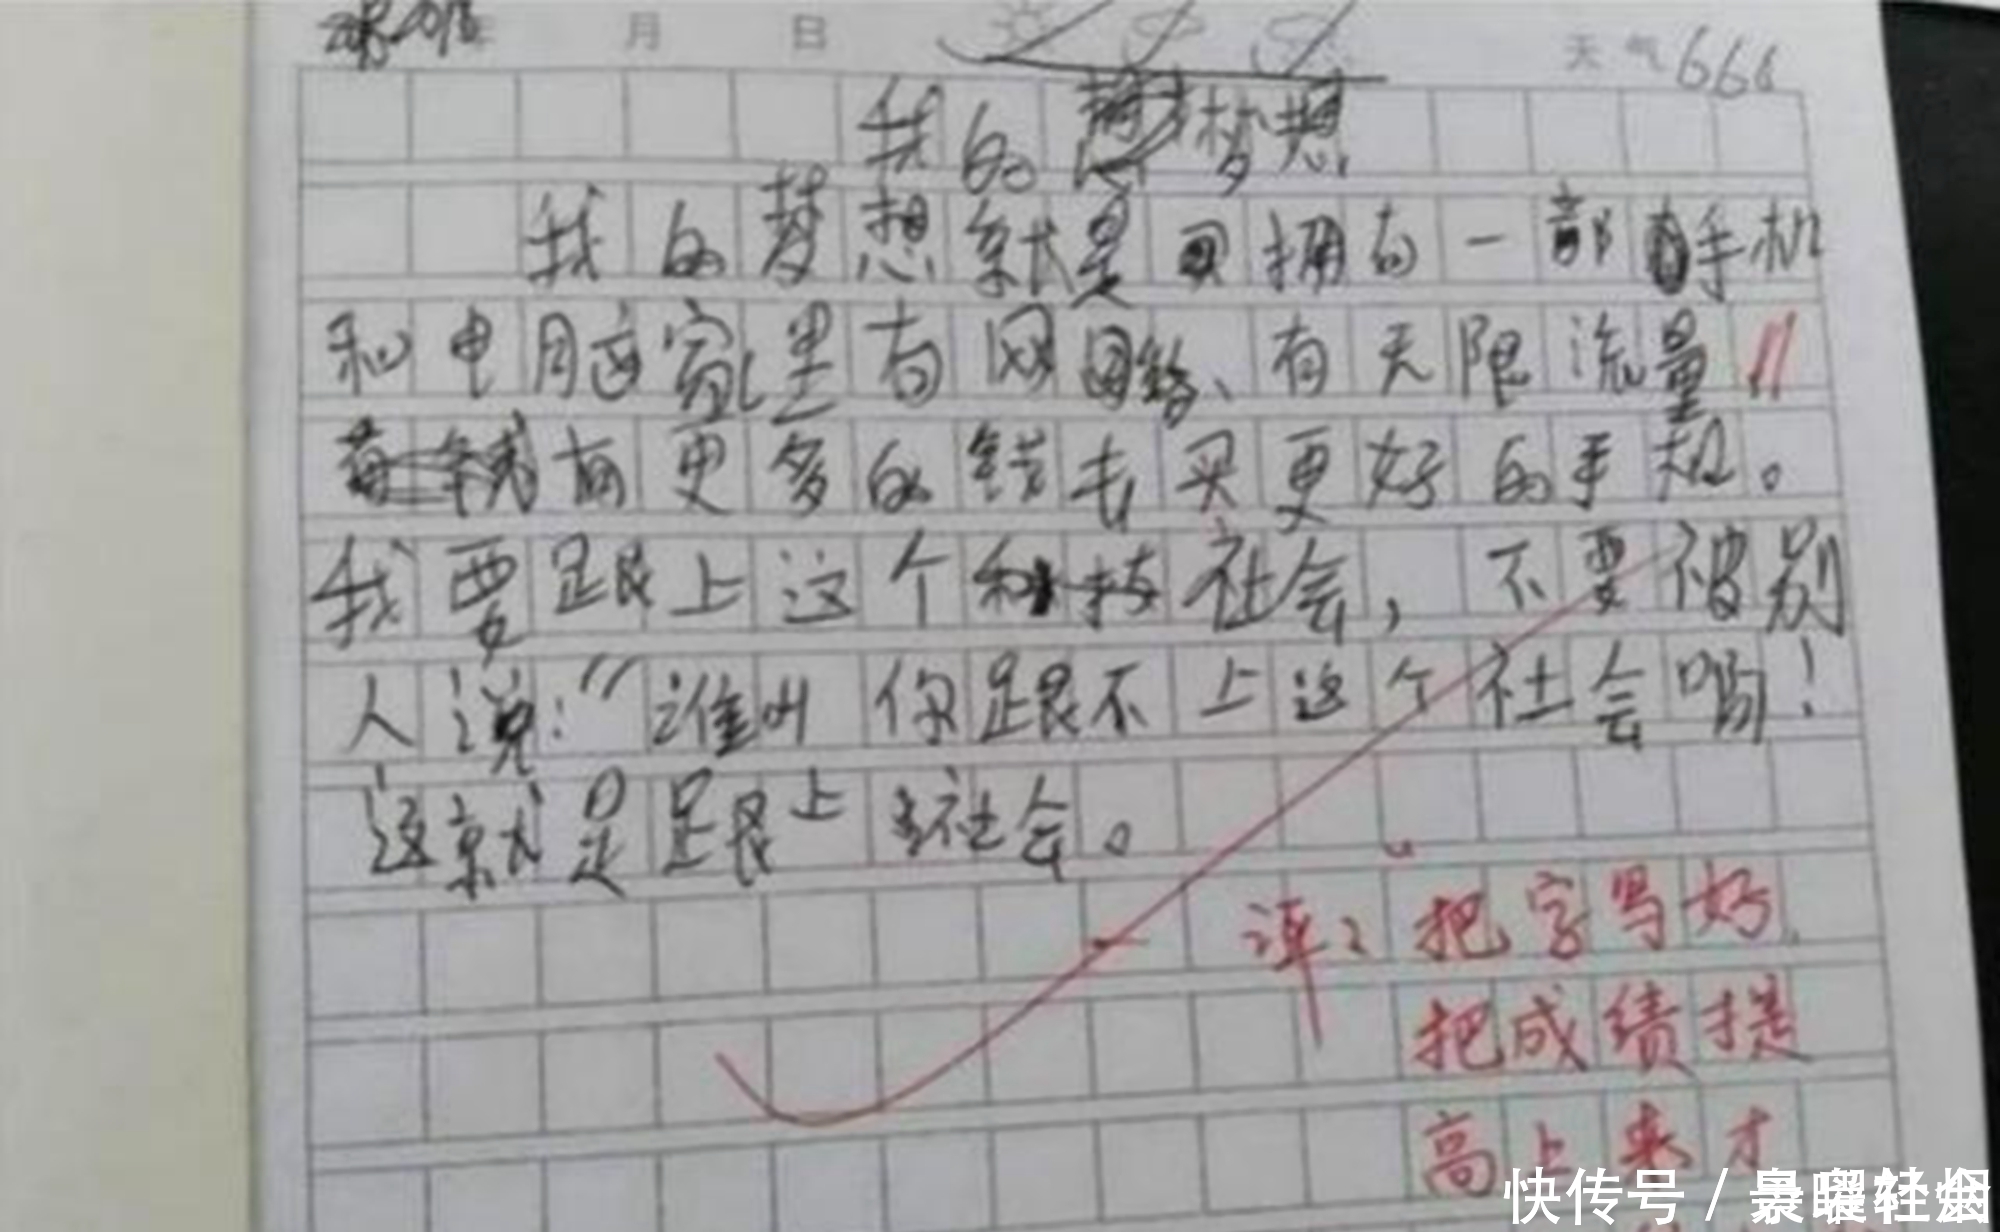 2018年 月 日 天气666
我的梦想
我的梦想就是拥有一部手机
和电脑家里有网络、有无限流量
有更多的钱去买更好的手机。
我要跟上这个科技社会，不要被别
人说：“谁叫你跟不上这个社会哟！
这就是跟上社会。
评：把字写好，
把成绩提
高上来才
快传号/景曜轻烟